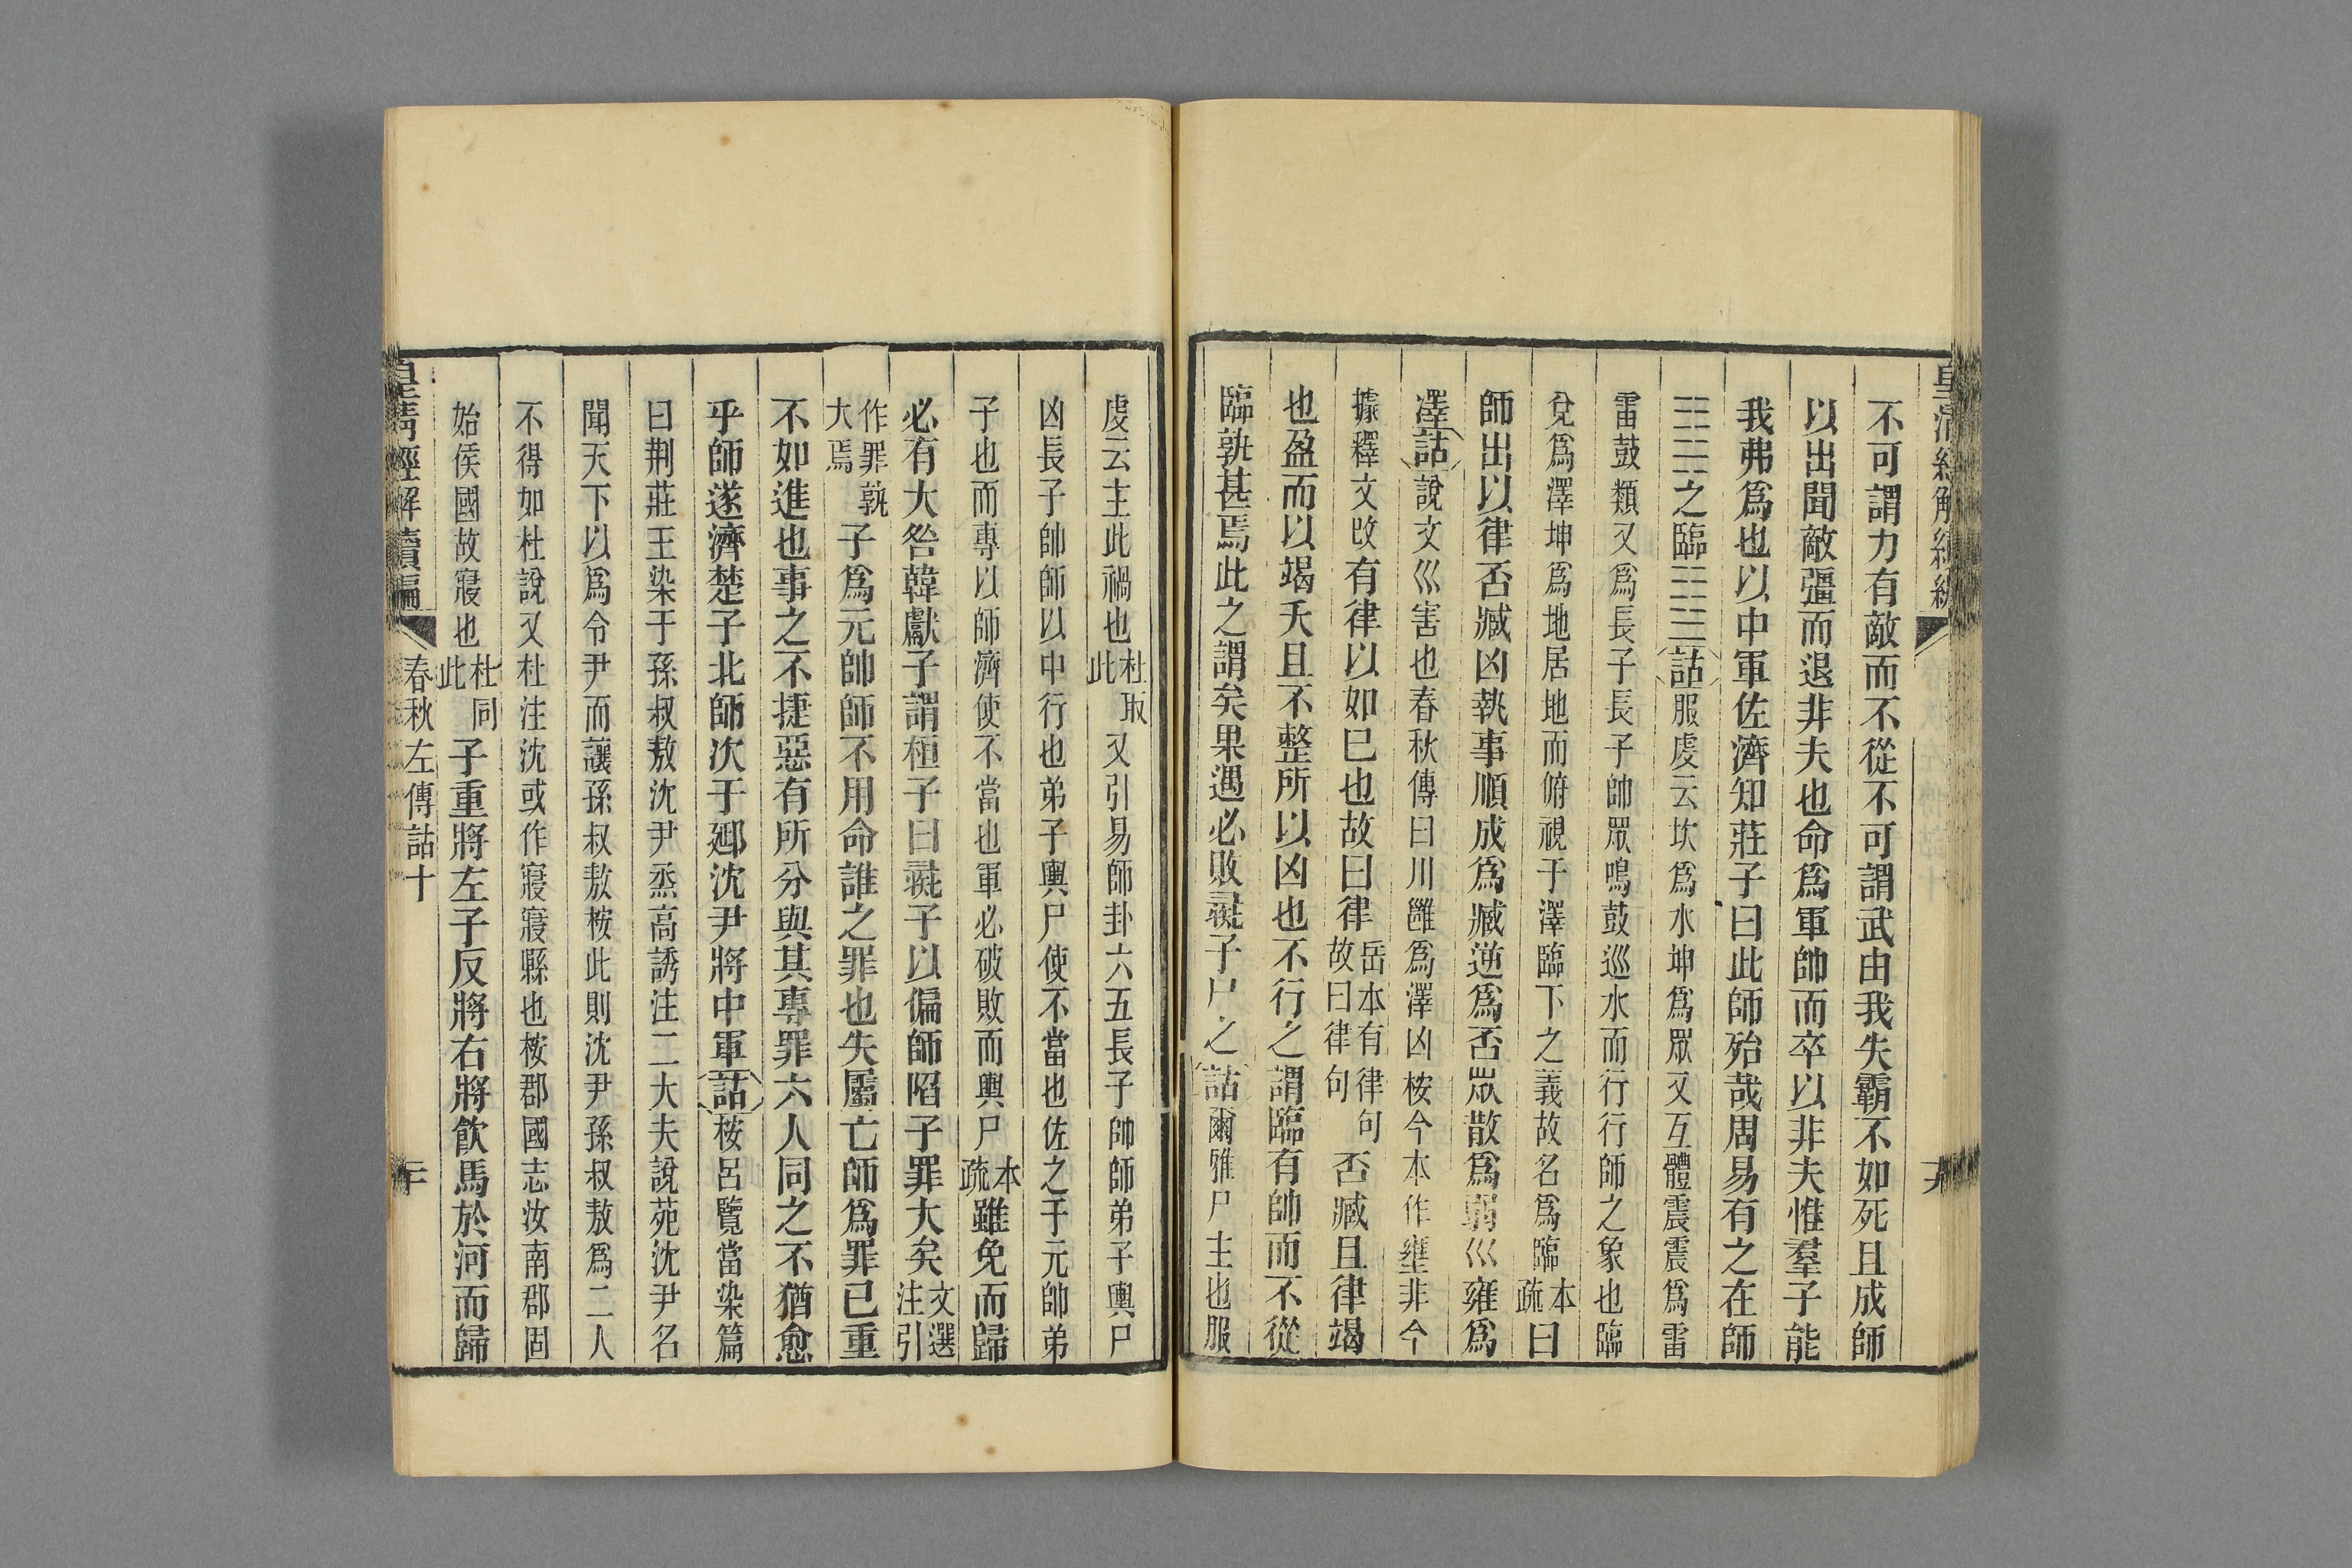 不可謂力有敵而不從不可謂武由我失霸不如死且成師
以出聞敵彊而退非夫也命爲軍帥而卒以非夫惟羣子能
我弗爲也以中軍佐濟知莊子曰此師殆哉周易有之在師
之臨詁服虔云坎爲水坤爲眾又互體震震爲雷
雷鼓類又爲長子長子帥眾鳴鼓巡水而行行師之象也臨
兌爲澤坤爲地居地而俯視于澤臨下之義故名爲臨本疏曰
師出以律否臧凶執事順成爲臧逆爲否眾散爲弱巛雍爲
澤詁說文巛害也春秋傳曰川雝爲澤凶桉今本作壅非今
據釋文改有律以如己也故曰律岳本有律句故曰律句否臧且律竭
也盈而以竭夭且不整所以凶也不行之謂臨有帥而不從
臨孰甚焉此之謂矣果遇必敗彘子尸之詁爾雅尸主也服
虔云主此禍也杜取此又引易師卦六五長子帥師弟子輿尸
凶長子帥師以中行也弟子輿尸使不當也佐之于元帥弟
子也而專以師濟使不當也軍必破敗而輿尸本疏雖免而歸
必有大咎韓獻子謂桓子曰彘子以偏師陷子罪大矣文選注引
作罪孰大焉子爲元帥師不用命誰之罪也失屬亡師爲罪已重
不如進也事之不捷惡有所分與其專罪六人同之不猶愈
乎師遂濟楚子北師次于郔沈尹將中軍詁桉呂覽當染篇
曰荆莊王染于孫叔敖沈尹烝高誘注二大夫說苑沈尹名
聞天下以爲令尹而讓孫叔敖桉此則沈尹孫叔敖爲二人
不得如杜說又杜注沈或作寢寢縣也桉郡國志汝南郡固
始侯國故寢也杜同此子重將左子反將右將飲馬於河而歸
皇清經解續編 春秋左傳詁十 二十